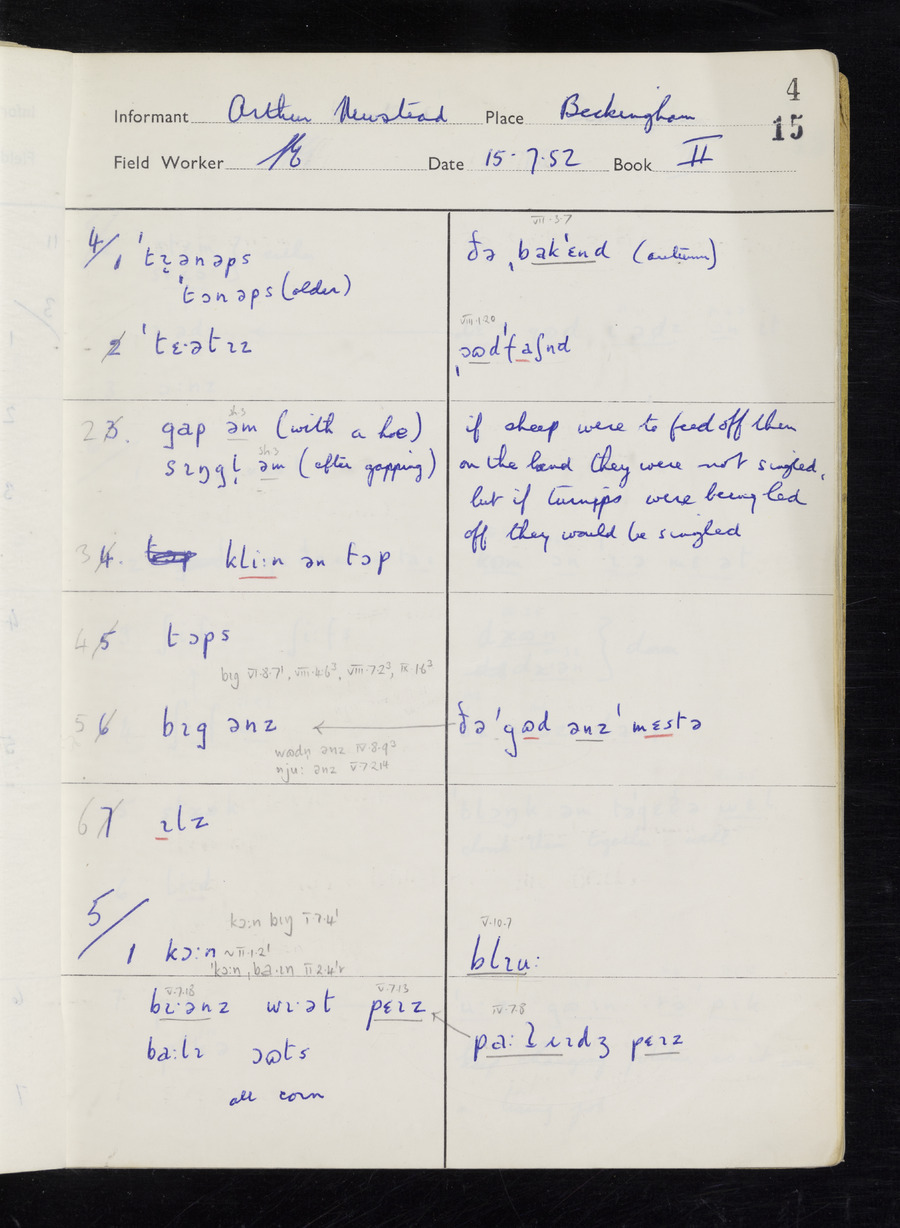 4
15
Informant Arthur Newstead Place Beckingham
Field Worker Date 15·7·52 Book II
4/1 ˈtɹ̩ənəps
ˈtɔnəps (older)
2 ˈtɛ·ətɪz
2 3. gap əm (with a hoe)
sh.s
sɪŋgl̩ əm (after gapping)
sh.s
3 4. kli:n ən tɔp
4 5 tɔps
bɪg VI·8·7¹, VIII·4·6³, VIII·7·2³, IX·16³
5 6 bɪg ənz
wɒdn̩ ənz IV·8·9³
nju: ənz V·7·214
6 7 ɪlz
5/
kɔ:n bɪŋ I·7·4¹
1 kɔ:n ~II·1·2¹
ˈkɔ:nˌba:ɪn II·2·4¹r
V·7·18
V·7·13
bɪ·ənz wɪ·ət pɛɪz
ba:lɪ ɔɷts
all corn
VII·3·7
ðə ˌbakˈɛnd (autumn)
VIII·1·20
ˌɔɷdˈfaʃnd
if sheep were to feed off them
on the land they were not singled,
but if turnips were being led
off they would be singled
ðə ˈgɷd ənzˈ mɛstə
V·10·7
blɪu:
IV·7·8
pa:ʔɪɪdʒ pɛɪz